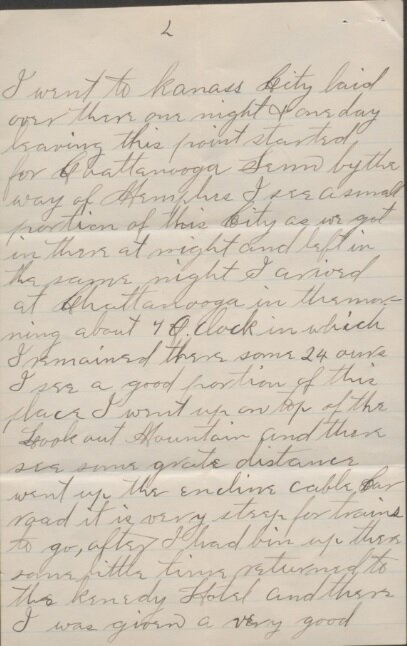 2
I went to kanass City laid
over there one night & one day
leaving this point started
for Chattanooga Tenn by the
way of Memphis I see a small
portion of this City as we got
in there at night and left in
the same night I arived
at Chattanooga in the mor-
ning about 7 O.Clock in which
I remained there some 24 ours
I see a good portion of this
place I went up on top of the
Look out Mountain and there
see some grate distance
went up the encline cable Car
road it is very steep for trains
to go, after I had bin up there
some little time returned to
the Kenedy Hotel and there
I was given a very good